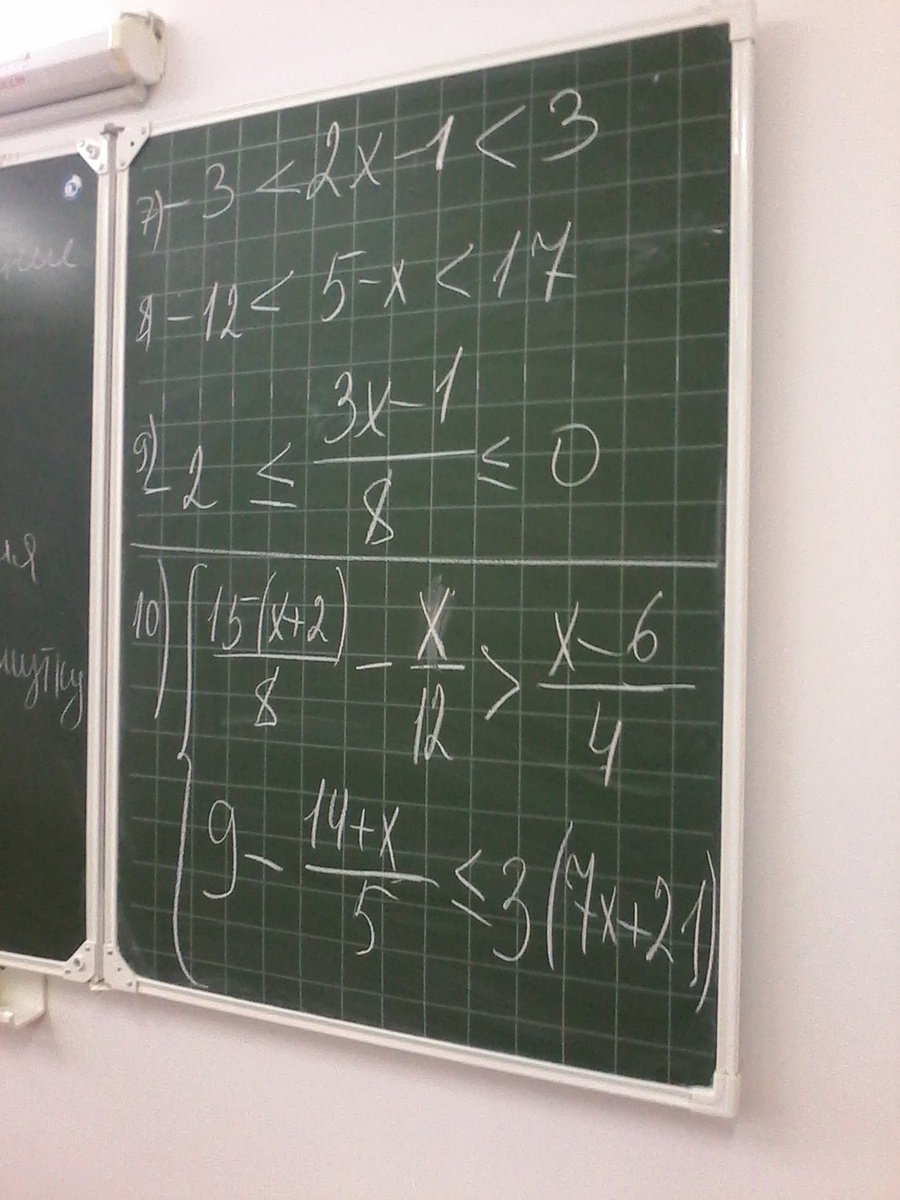 7) -3 < 2x - 1 < 3
8) -12 < 5 - x < 17
9) -2 ≤ (3x - 1)/8 ≤ 0
10) { 15(x+2)/8 - x/12 > (x-6)/4
9 - (14+x)/5 ≤ 3(7x+21)